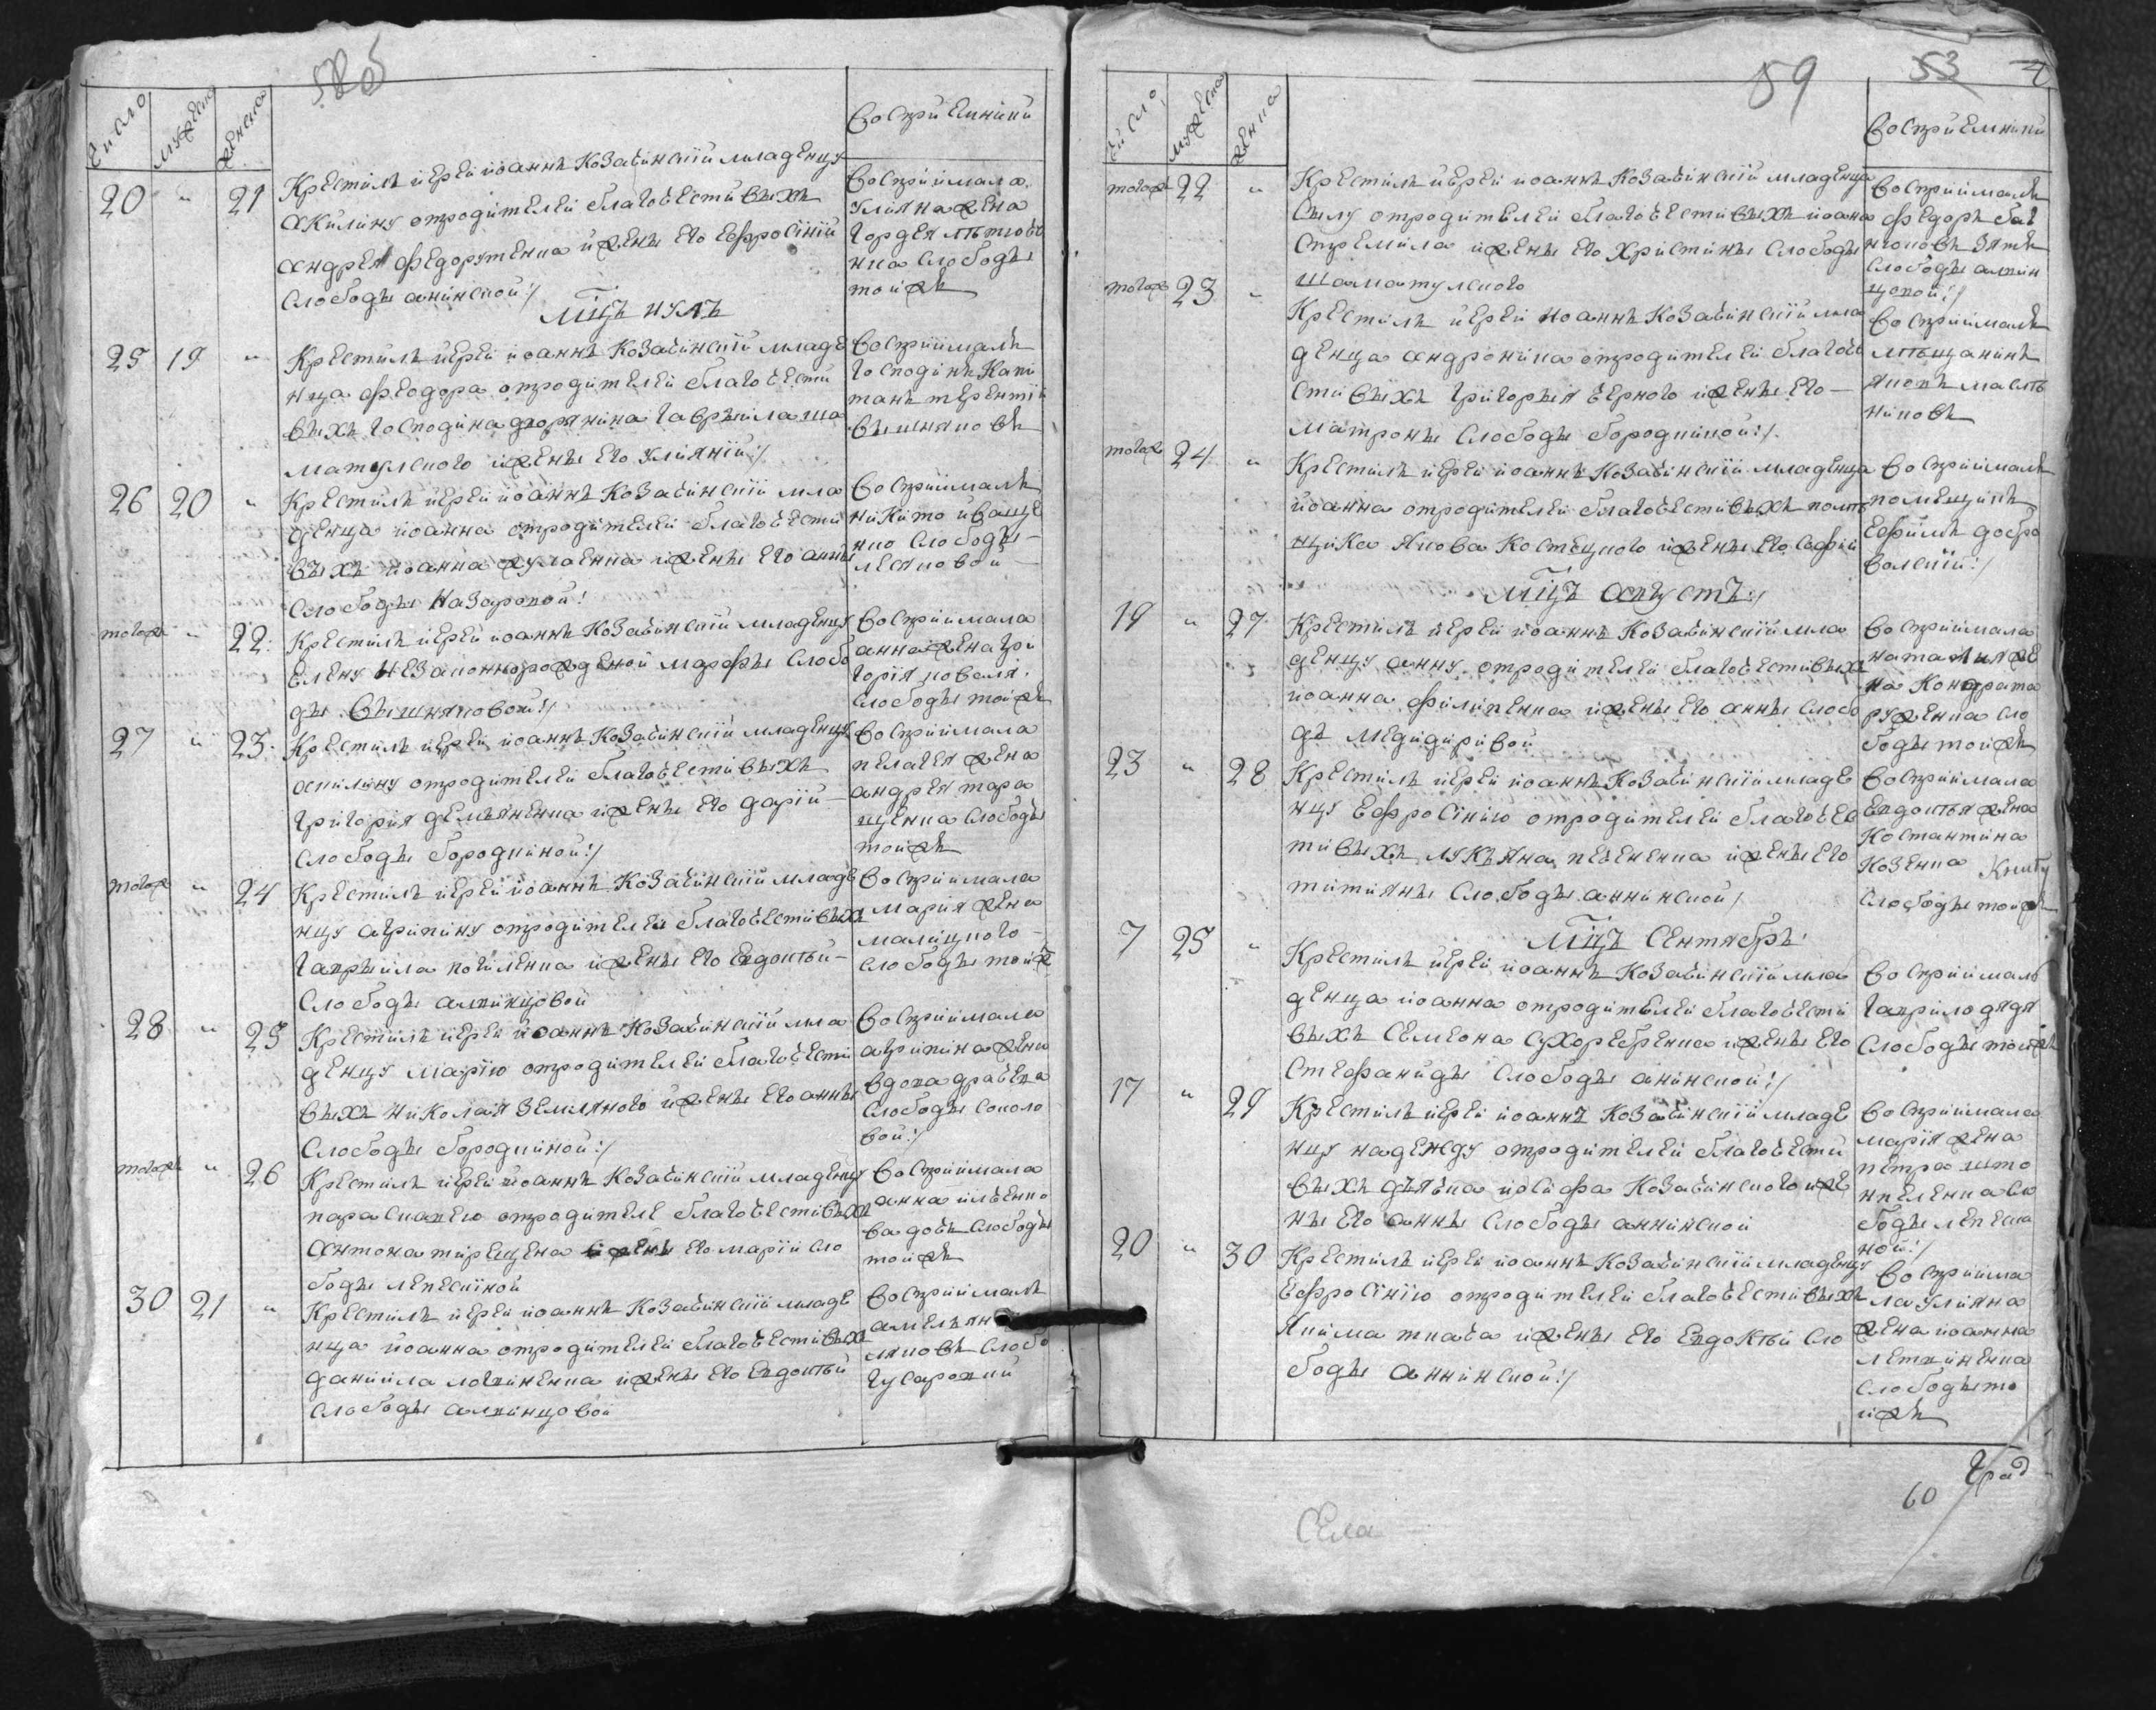 58 об
число мужеска женска
восприемники
20 " 21 Крестилъ иерей иоаннъ Козачинский младенцу
акилину отродителей благочестивыхъ
андрея федорутенка ижены его ефросинии
слободы анинской:/
восприимала
улияна жена
гордея
слободы
тойжъ
Мцъ иуль
25 19 " Крестилъ иерей иоаннъ Козачинский младе
нца феодора отродителей благочести
выхъ господина дворянина гаврыила ша
матулского ижены его улиянии:/
восприималъ
господинъ капи
танъ терентий
вышняковъ
26 20 " Крестилъ иерей иоаннъ Козачинский мла
денца иоанна отродителей благочести
выхъ иоанна кулаенка ижены его анны
слободы назаровой:
восприималъ
никита иваще
нко слободы
лесяковой
тогожъ " 22 Крестилъ иерей иоаннъ Козачинский младенцу
елену незаконнорожденой марфы слобо
ды вышняковой:/
восприимала
анна жена гри
гория коваля
слободы тойжъ
27 " 23 Крестилъ иерей иоаннъ Козачинский младенцу
акилину отродителей благочестивыхъ
григория демьяненка ижены его дарии
слободы бородкиной:/
восприимала
пелагея жена
андрея тара
щенка слободы
тойжъ
тогожъ " 24 Крестилъ иерей иоаннъ Козачинский младе
нцу агрипину отродителей благочестивыхъ
гаврыила кошленка ижены его евдокѣи
слободы алеинцовой
восприимала
мария жена
малицкого
слободы тойж
28 " 25 Крестилъ иерей иоаннъ Козачинский мла
денцу марию отродителей благочести
выхъ николая земляного ижены его анны
слободы бородкиной:/
восприимала
агрипина жена
вдова драчева
слободы соколо
вой:/
тогожъ " 26 Крестилъ иерей иоаннъ Козачинский младенцу
параскавею отродителе благочестивыхъ
антона тирещена ижены его марии сло
боды лепескиной
восприимала
анна илченко
ва дочь слободы
тойжъ
30 21 " Крестилъ иерей иоаннъ Козачинский младе
нца иоанна отродителей благочестивыхъ
даниила логвиненка ижены его евдокѣи
слободы алеинцовой
восприималъ
амелъян
слобо
гусаровки
59 53
число мужеска женска
восприемники
тогожъ 22 " Крестилъ иерей иоаннъ Козачинский младенца
силу отродителей благочестивыхъ иоана
стремила ижены его христины слободы
шаматулского
восприималъ
федоръ бат
нюковъ зять
слободы алеин
цовой:/
тогожъ 23 " Крестилъ иерей иоаннъ Козачинский мла
денца андроника отродителей благоче
стивыхъ григорыя черного ижены его
матроны слободы бородкиной:/
восприималъ
мѣщанинъ
яковъ маслѣ
никовъ
тогожъ 24 " Крестилъ иерей иоаннъ Козачинский младенца
иоанна отродителей благочестивыхъ помѣ
щика якова костецкого ижены его софии
восприималъ
помещикъ
ефимъ добро
волский:/
Мцъ августъ:/
19 " 27 Крестилъ иерей иоаннъ Козачинский мла
денцу анну отродителей благочестивыхъ
иоанна филипенка ижены его анны слобо
ды медидировой
восприимала
наталия же
на кондрата
руженка сло
боды тойжъ
23 " 28 Крестилъ иерей иоаннъ Козачинский младе
нцу ефросинию отродителей благочес
тивыхъ лукъяна печененка ижены его
титияны слободы аннинской/
восприимала
евдокѣя жена
костантина
козенка
слободы тойжъ
Мцъ сентябръ
7 25 " Крестилъ иерей иоаннъ Козачинский мла
денца иоанна отродителей благочести
выхъ семеона сухоребренка ижены его
стефаниды слободы анинской:/
восприималъ
гаврило дядя
слободы тойжъ
17 " 29 Крестилъ иерей иоаннъ Козачинский младе
нцу надежду отродителей благочести
выхъ дъячка иосифа Козачинского иже
ны его анны слободы аннинской
восприимала
мария жена
петра што
нпеленка сло
боды лепеша
ной:/
20 " 30 Крестилъ иерей иоаннъ Козачинский младенцу
ефросинию отродителей благочестивыхъ
якима ткача ижены его евдокѣи сло
боды аннинской:/
восприима
ла улияна
жена иоанна
литвиненка
слободы то
йжъ
60 Град
Села